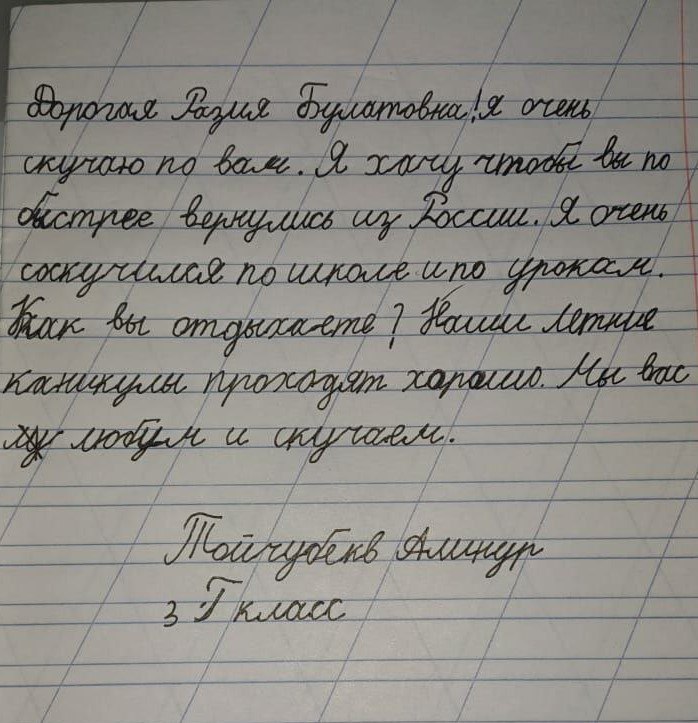 Дорогая Разия Булатовна! Я очень
скучаю по вам. Я хачу чтобы вы по
быстрее вернулись из России. Я очень
соскучился по школе и по урокам.
Как вы отдыхаете? Наши летние
каникулы проходят хорошо. Мы вас
любим и скучаем.
Тойчубекв Аминур
3 Г класс